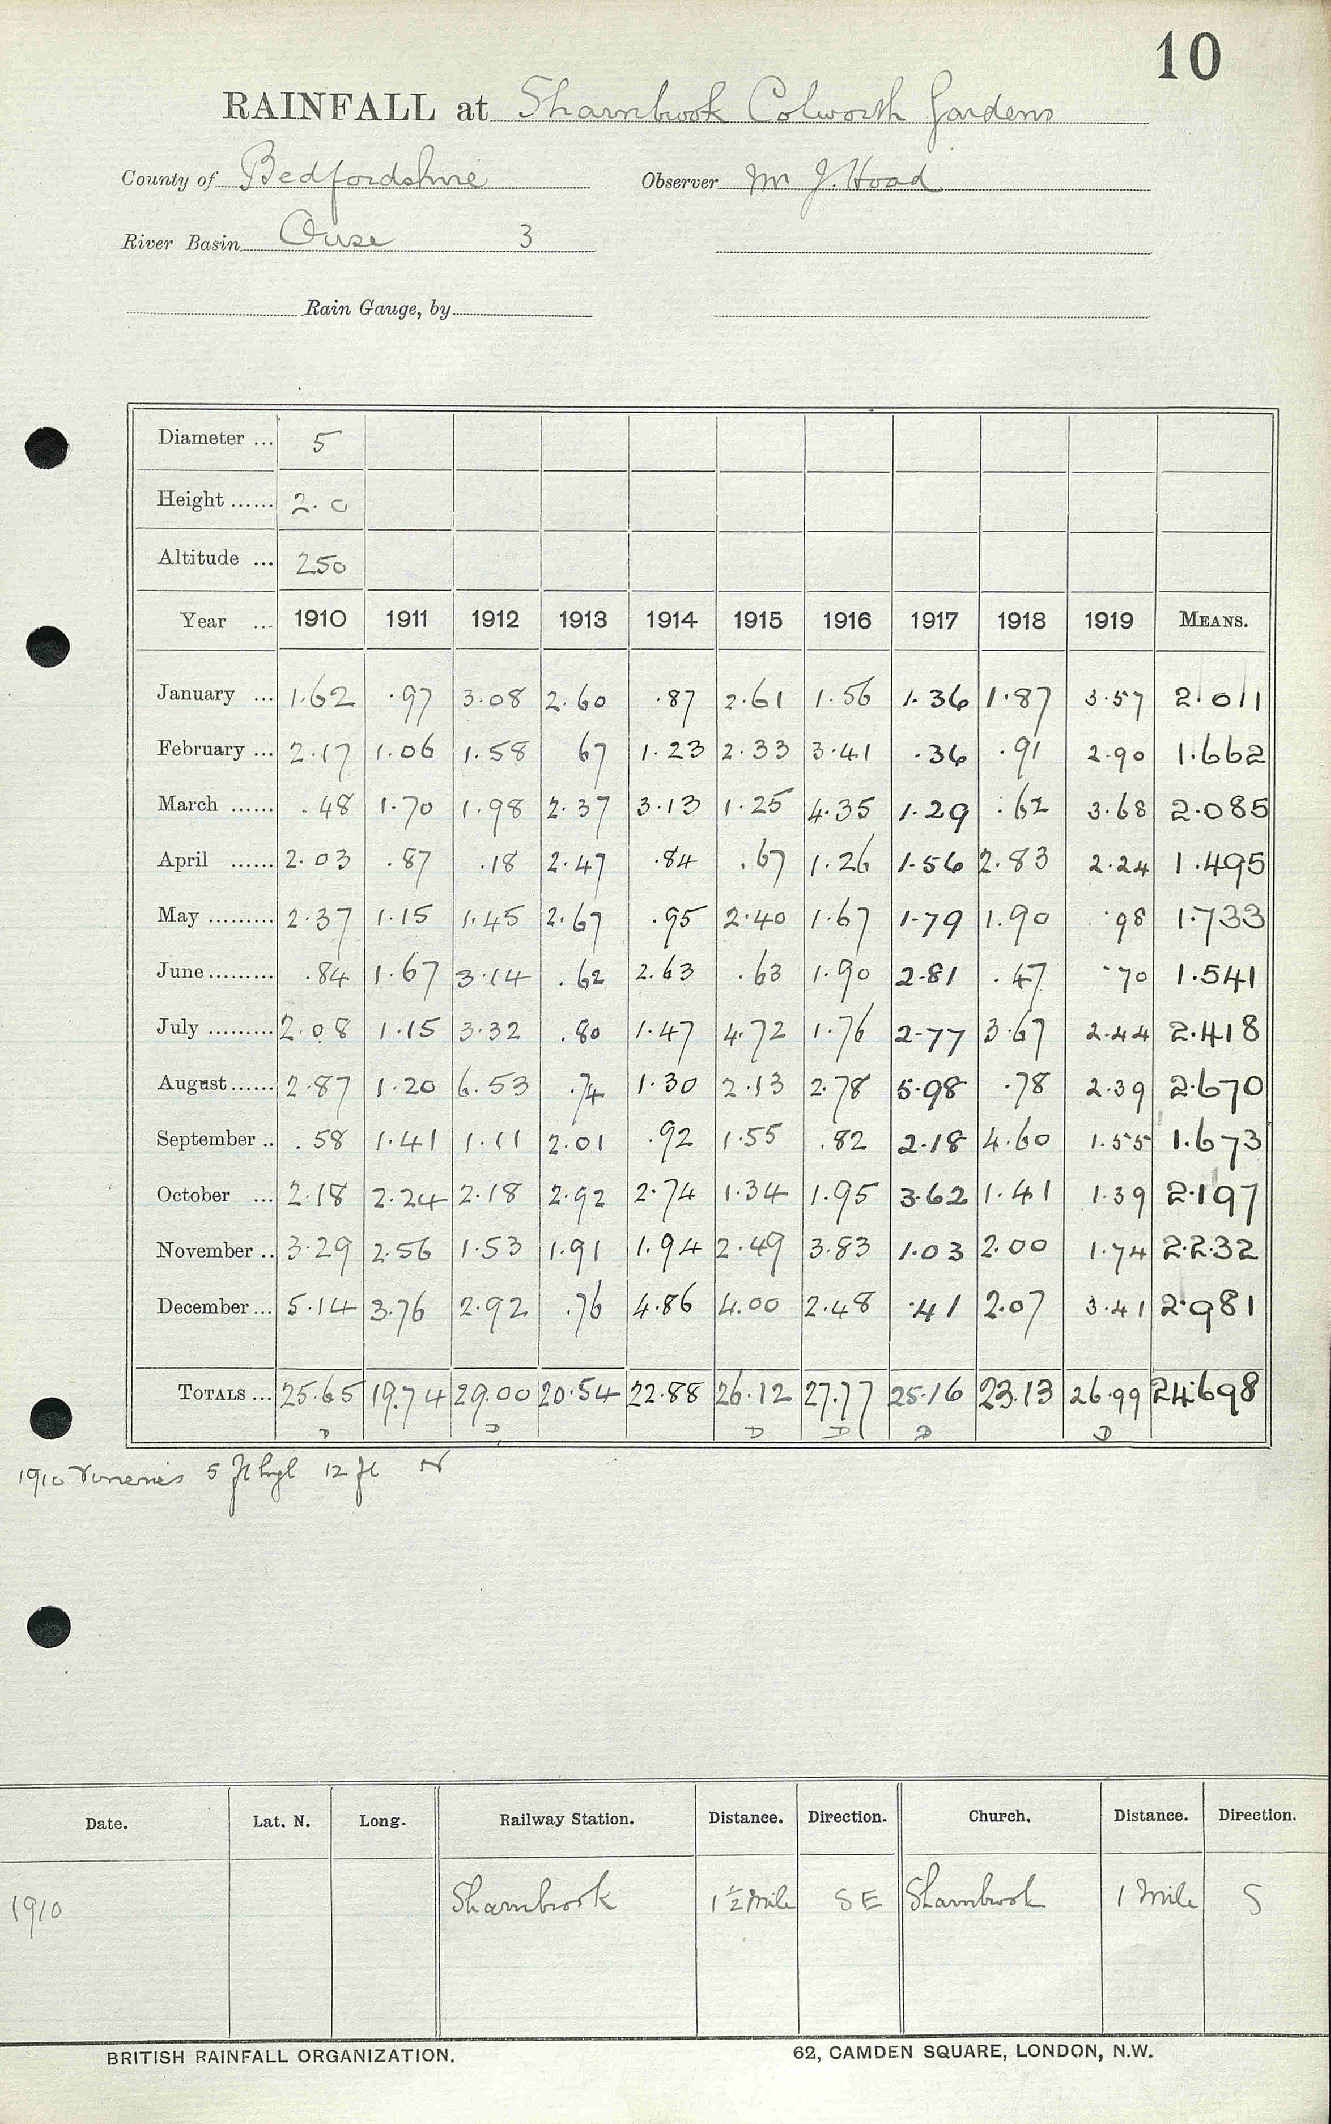 10
RAINFALL at Sharnbrook Colworth Gardens
County of Bedfordshire Observer Mr J. Hoad
River Basin Ouse 3
Rain Gauge, by
Diameter ... 5
Height ...... 2.0
Altitude ... 250
Year ... 1910 1911 1912 1913 1914 1915 1916 1917 1918 1919 MEANS.
January ... 1.62 .97 3.08 2.60 .87 2.61 1.56 1.36 1.87 3.57 2.011
February ... 2.17 1.06 1.58 67 1.23 2.33 3.41 .36 .91 2.90 1.662
March ...... .48 1.70 1.98 2.37 3.13 1.25 4.35 1.29 .62 3.68 2.085
April ...... 2.03 .87 .18 2.47 .84 .67 1.26 1.56 2.83 2.24 1.495
May ......... 2.37 1.15 1.45 2.67 .95 2.40 1.67 1.79 1.90 .98 1.733
June ......... .84 1.67 3.14 .62 2.63 .63 1.90 2.81 .47 .70 1.541
July ......... 2.08 1.15 3.32 .80 1.47 4.72 1.76 2.77 3.67 2.44 2.418
August ...... 2.87 1.20 6.53 .74 1.30 2.13 2.78 5.98 .78 2.39 2.670
September .. .58 1.41 1.11 2.01 .92 1.55 .82 2.18 4.60 1.55 1.673
October ... 2.18 2.24 2.18 2.92 2.74 1.34 1.95 3.62 1.41 1.39 2.197
November .. 3.29 2.56 1.53 1.91 1.94 2.49 3.83 1.03 2.00 1.74 2.232
December ... 5.14 3.76 2.92 .76 4.86 4.00 2.48 .41 2.07 3.41 2.981
TOTALS ... 25.65 19.74 29.00 20.54 22.88 26.12 27.77 25.16 23.13 26.99 24.698
D D D D D D
1910 5 ft high 12 ft N
Date. Lat. N. Long. Railway Station. Distance. Direction. Church. Distance. Direction.
1910 Sharnbrook 1½ Mile SE Sharnbrook 1 Mile S
BRITISH RAINFALL ORGANIZATION. 62, CAMDEN SQUARE, LONDON, N.W.